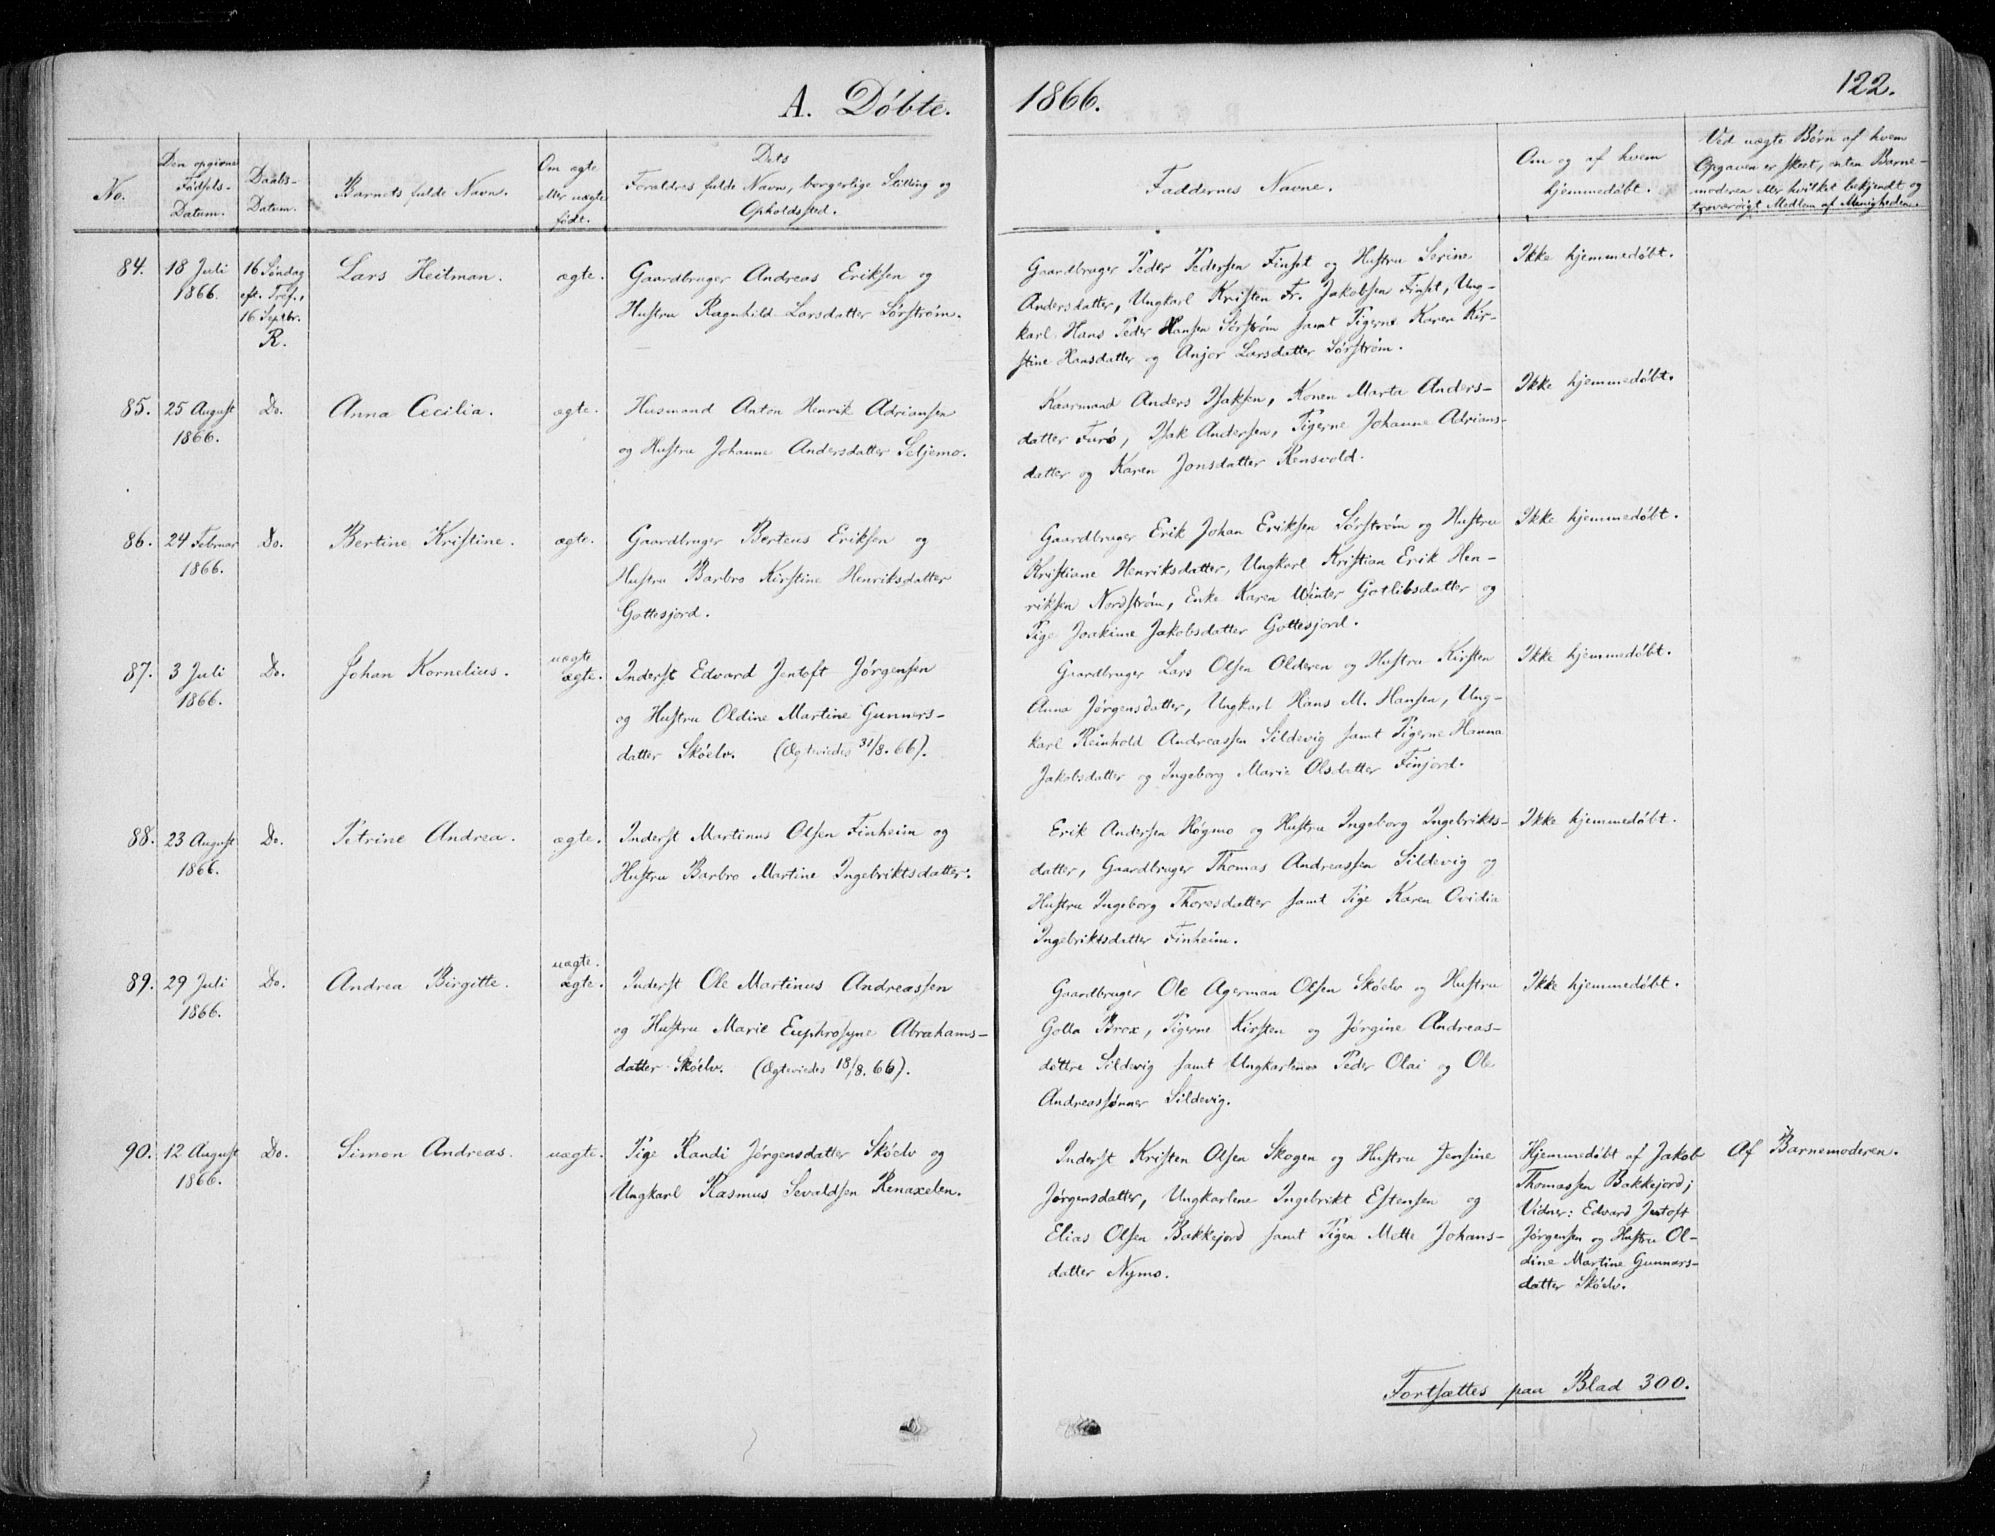 A. Døbte.
1866.
122.
No.
Den opgivne
Fødsels-
Datum.
Daabs-
Datum.
Barnets fulde Navn.
Om ægte
eller uægte
født.
Dets
Forældres fulde Navn, borgerlige Stilling og
Opholdssted.
Faddernes Navne.
Om og af hvem
hjemmedøbt.
Ved uægte Børn af hvem
Opgaven er skeet, enten Barne-
moderen eller hvilket bekjendt og
troværdigt Medlem af Menigheden.
84.
18 Juli
1866.
16 Søndag
eft. Tref.,
16 Septbr.
R.
Lars Heitman.
ægte.
Gaardbruger Andreas Eriksen og
Hustru Ragnhild Larsdatter Sørstrøm.
Gaardbruger Peder Pedersen Finset og Hustru Serine
Andersdatter, Ungkarl Kristen Fr. Jakobsen Finset, Ung-
karl Hans Peder Hansen Sørstrøm samt Pigerne Karen Kir-
stine Hansdatter og Anjor Larsdatter Sørstrøm.
Ikke hjemmedøbt.
85.
25 August
1866.
Do.
Anna Cecilia.
ægte.
Husmand Anton Henrik Adriansen
og Hustru Johanne Andersdatter Seljemo.
Kaarmand Anders Isaksen, Konen Marta Anders-
datter Furø, Isak Andersen, Pigerne Johanne Adrians-
datter og Karen Jonsdatter Rensvold.
Ikke hjemmedøbt.
86.
24 Februar
1866.
Do.
Bertine Kristine.
ægte.
Gaardbruger Berteus Eriksen og
Hustru Barbro Kirstine Henriksdatter
Gottesjord.
Gaardbruger Erik Johan Eriksen Sørstrøm og Hustru
Kristiane Henriksdatter, Ungkarl Kristian Erik Hen-
riksen Nordstrøm, Enke Karen Winter Gotlibsdatter og
Pige Joakime Jakobsdatter Gottesjord.
Ikke hjemmedøbt.
87.
3 Juli
1866.
Do.
Johan Kornelius.
uægte
ægte.
Inderst Edvard Jentoft Jørgensen
og Hustru Oldine Martine Gunners-
datter Skøelv. (Ægteviedes 31/8. 66).
Gaardbruger Lars Olsen Olderen og Hustru Kirsten
Anna Jørgensdatter, Ungkarl Hans M. Hansen, Ung-
karl Reinhold Andreassen Sildevig samt Pigerne Hanna
Jakobsdatter og Ingeborg Marie Olsdatter Finjord.
Ikke hjemmedøbt.
88.
23 August
1866.
Do.
Petrine Andrea.
ægte.
Inderst Martinus Olsen Finheim og
Hustru Barbro Martine Ingebriktsdatter.
Erik Andersen Høgmo og Hustru Ingeborg Ingebrikts-
datter, Gaardbruger Thomas Andreassen Sildevig og
Hustru Ingeborg Thoresdatter samt Pige Karen Ovidia
Ingebriktsdatter Finheim.
Ikke hjemmedøbt.
89.
29 Juli
1866.
Do.
Andrea Birgitte.
uægte.
ægte.
Inderst Ole Martinus Andreassen
og Hustru Marie Euphrosyne Abrahams-
datter Skøelv. (Ægteviedes 18/8. 66).
Gaardbruger Ole Agerman Olsen Skøelv og Hustru
Golla Brox, Pigerne Kirsten og Jørgine Andreas-
døttre Sildevig samt Ungkarlene Peder Olai og Ole
Andreassønner Sildevig.
Ikke hjemmedøbt.
90.
12 August
1866.
Do.
Simon Andreas.
uægte.
Pige Randi Jørgensdatter Skøelv og
Ungkarl Rasmus Sevaldsen Renaxelen.
Inderst Kristen Olsen Skogen og Hustru Jensine
Jørgensdatter, Ungkarlene Ingebrikt Estensen og
Elias Olsen Bakkejord samt Pigen Mette Johans-
datter Nymo.
Hjemmedøbt af Jakob
Thomassen Bakkejord;
Vidner: Edvard Jentoft
Jørgensen og Hustru Ol-
dine Martine Gunnars-
datter Skøelv.
Af Barnemoderen.
Fortsættes paa Blad 300.